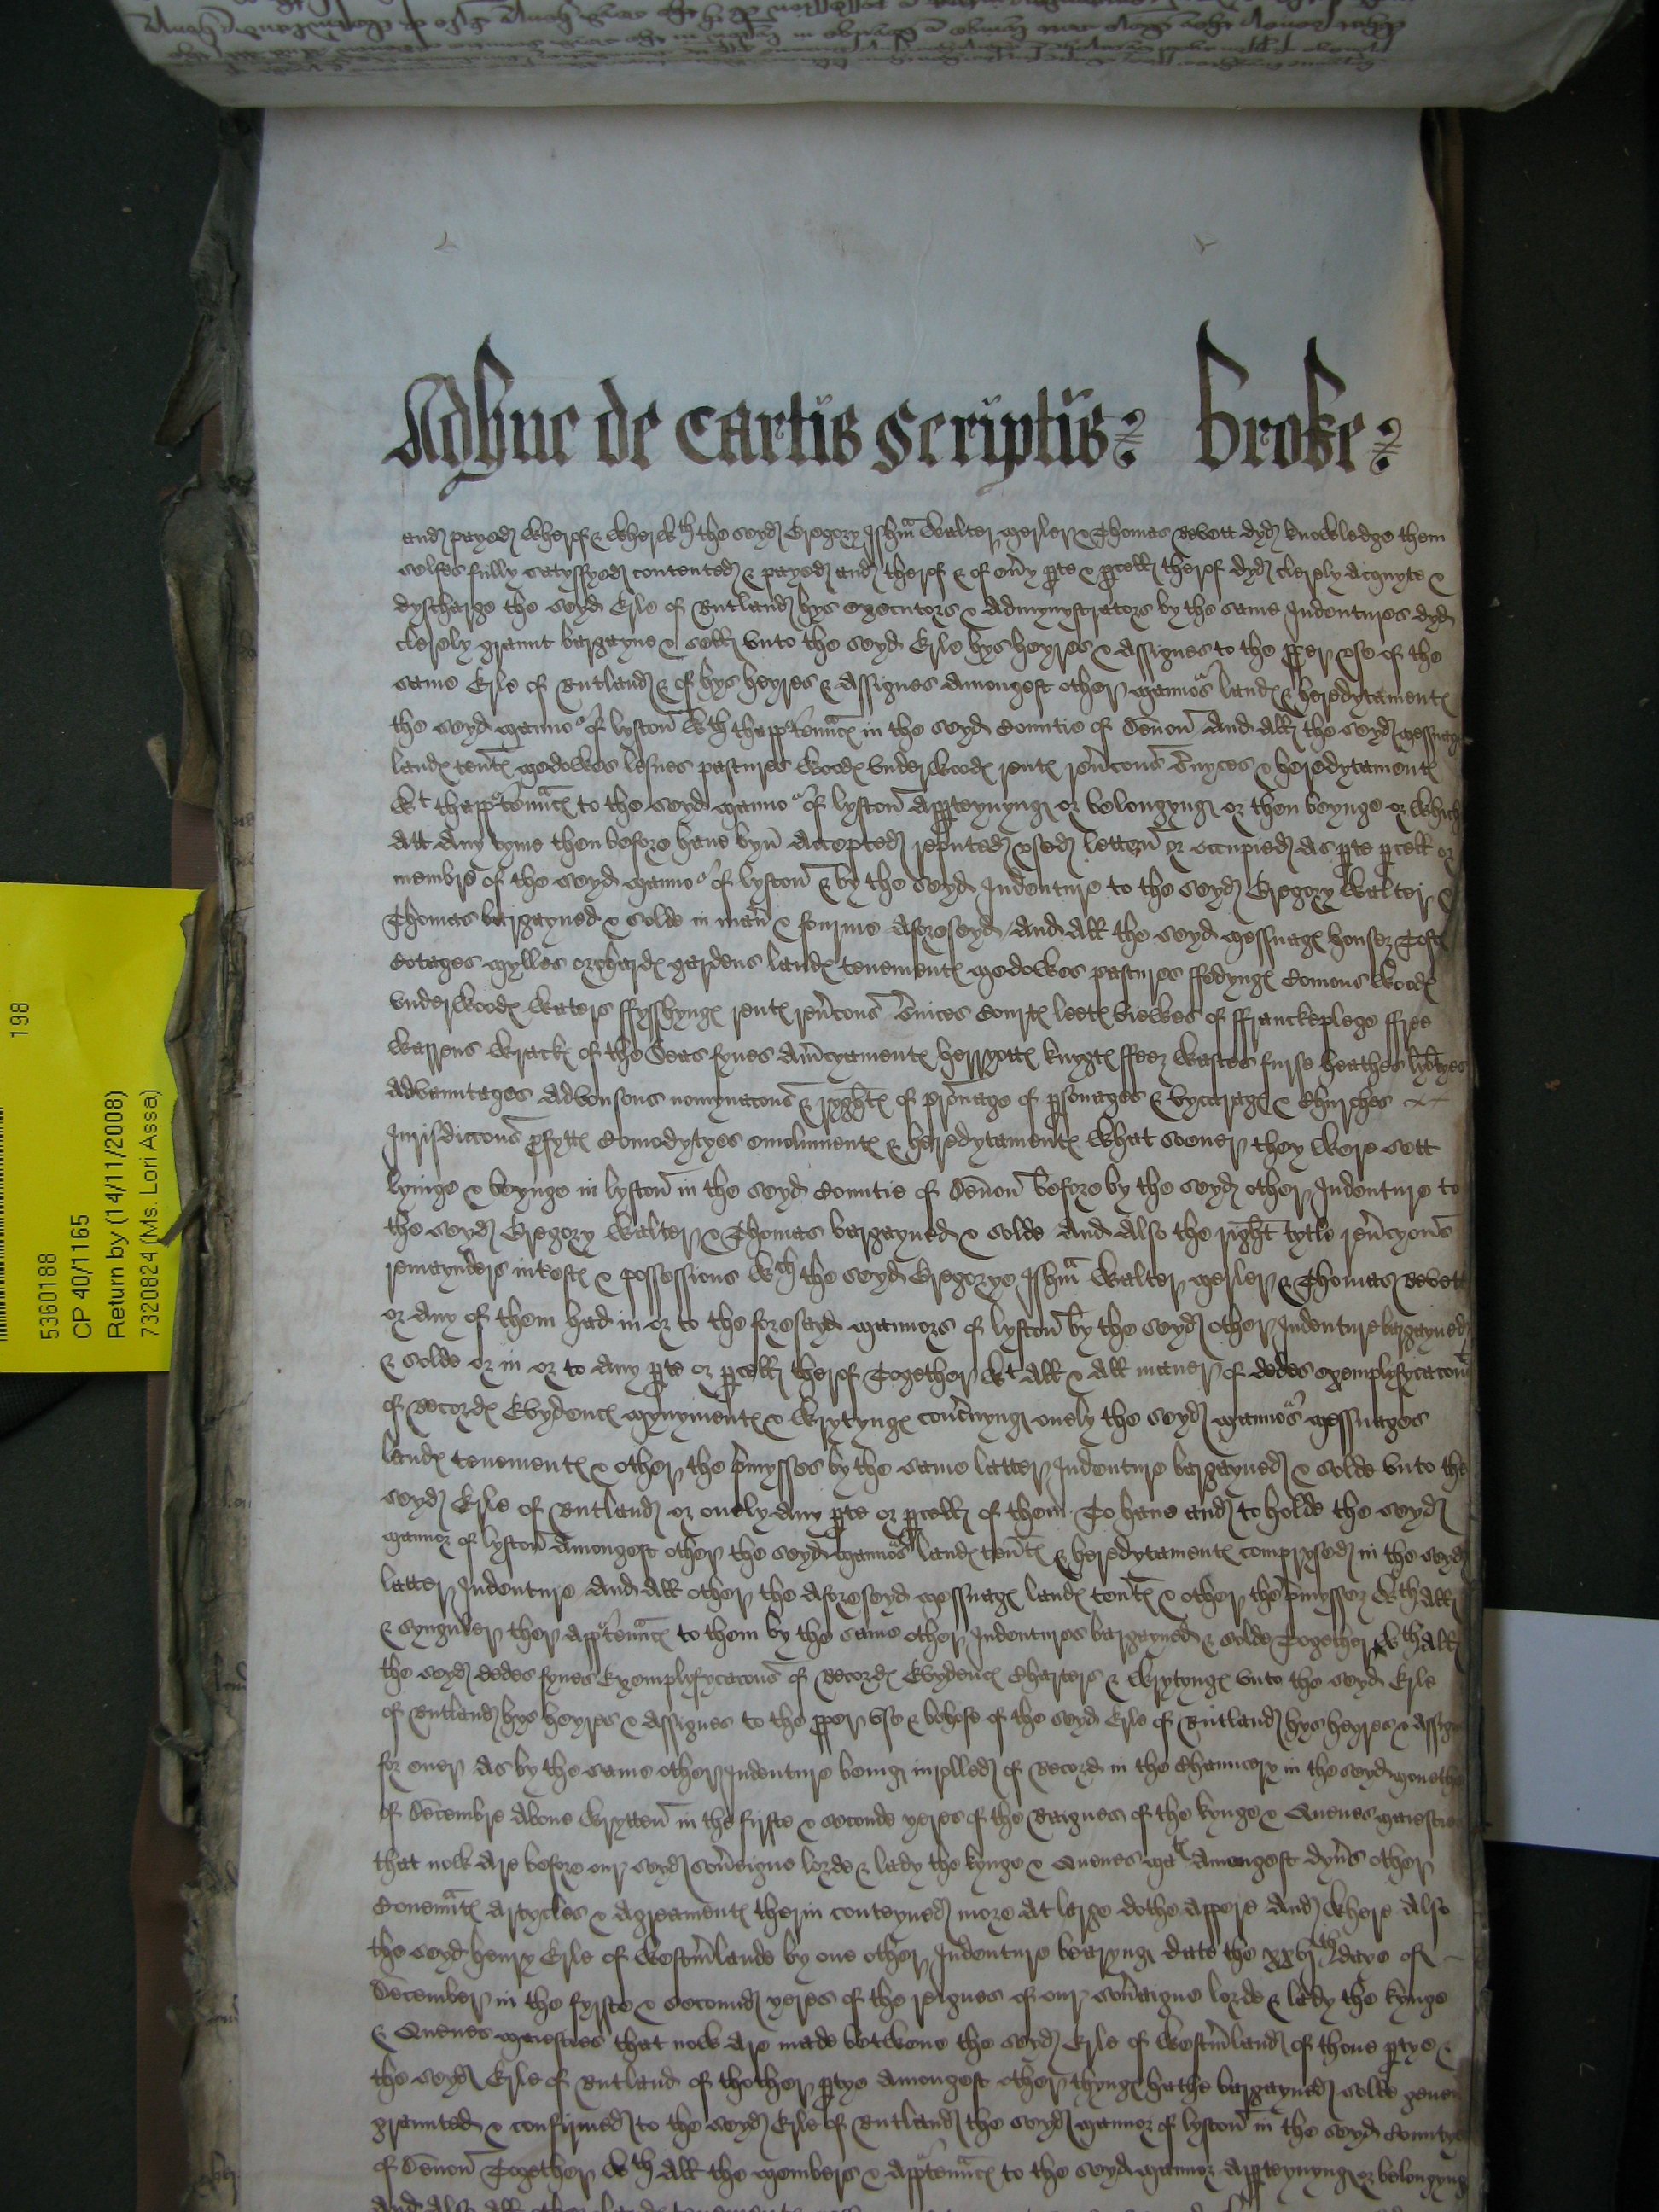 Adhuc de Cartis Scriptis Broke
and payed wherof & wherwth the seyd Gregory Isham Walter Merler & Thomas Revett dyd knowledge them
selfes fully satysfyed contented & payed and therof & of eny pte & pcell therof dyd clerely acquyte &
dyscharge the seyd Erle of Rutland hys executors & admynystrators by the same Indentures dyd
clerely graunt bargayne & sell unto the seyd Erle hys heyres & assignes to the pper use of the
same Erle of Rutland & of hys heyres & assignes amongest other mannors landes & heredytamentes
the seyd mannor of lyston wth thapptennces in the seyd Countie of Devon And all the seyd messuages
landes tentes medowes lesues pastures woodes underwoodes rentes revcons svyces & heredytamentes
wt thapptennces to the seyd mannor of lyston appteynyng or belongyng or then beynge or which
att any tyme then before have byn accepted reputed used letten or occupied as pte pcell or
membre of the seyd mannor of lyston & by the seyd Indenture to the seyd Gregory Walter &
Thomas bargayned & solde in man & fourme aforeseyd And all the seyd messuages houses Toftes
Cotages mylles orchardes gardens landes tenementes medowes pastures ffedynges Comens woodes
underwoodes waters ffysshynges rentes revcons svices Courtes leetes viewes of ffranckplege ffree
warrens wrackes of the Seas fynes amcyamentes heryottes knyghtes ffees wastes furse heathes lybtyes
advauntages advousons nomynacons & ryghtes of pronage of psonages & vycarages & Churches
Jurisdiccons pfyttes Comodytyes emolumentes & heredytamentes what soever they were sett
lyinge & beynge in lyston in the seyd Countie of Devon before by the seyd other Indenture to
the seyd Gregory Walter & Thomas bargayned & solde And also the right tytle revcyons
remaynders interestes & possessions wch the seyd Gregorye Isham Walter Merler & Thomas Revett
or any of them had in or to the foresayd mannors of lyston by the seyd other Indenture bargayned
& solde or in or to any pte or pcell therof Together wt all & all maner of dedes exemplyfycacons
of Recordes Evydences mynymentes & wrytynges concnyng onely the seyd mannors messuages
landes tenementes & other the pmysses by the same latter Indenture bargayned & solde unto the
seyd Erle of Rutland or onely any pte or pcell of them To have and to holde the seyd
mannor of lyston Amongest other the seyd mannors landes tentes & heredytamentes comprysed in the seyd
latter Indenture And all other the aforeseyd messuages landes tentes & other the pmysses wth all
& synguler ther apptennces to them by the same other Indentures bargayned & solde Together wth all
the seyd dedes fynes Exemplyfycacons of Recordes Evydences Charters & wrytynges unto the seyd Erle
of Rutland hys heyres & assignes to the pper use & behofe of the seyd Erle of Rutland hys heyres & assignes
for ever As by the same other Indenture beinge inrolled of Record in the Chauncery in the seyd moneth
of Decembre above wrytten in the firste & seconde yeres of the Raignes of the kynge & Quenes maiesties
that now are before our seyd soveigne lorde & lady the kynge & Quenes mates amongest dyvs other
Covenntes artycles & agreamentes therin conteyned more at large dothe appere And where also
the seyd henry Erle of westmlande by one other Indenture bearyng date the xxvjth daye of
December in the fyrste & second yeres of the reignes of our soveraigne lorde & lady the kynge
& Quenes maiesties that now are made betwene the seyd Erle of westmland of thone ptye &
the seyd Erle of Rutland of thother ptye amongest other thynges hathe bargayned solde geven
graunted & confirmed to the seyd Erle of Rutland the seyd mannor of lyston in the seyd Countye
of Devon Together wth all the members & apptennces to the seyd mannor appteynyng or belongyng
And also all other landes tenementes
198
5360188
CP 40/1165
Return by (14/11/2008)
7320824 (Ms. Lori Assa)